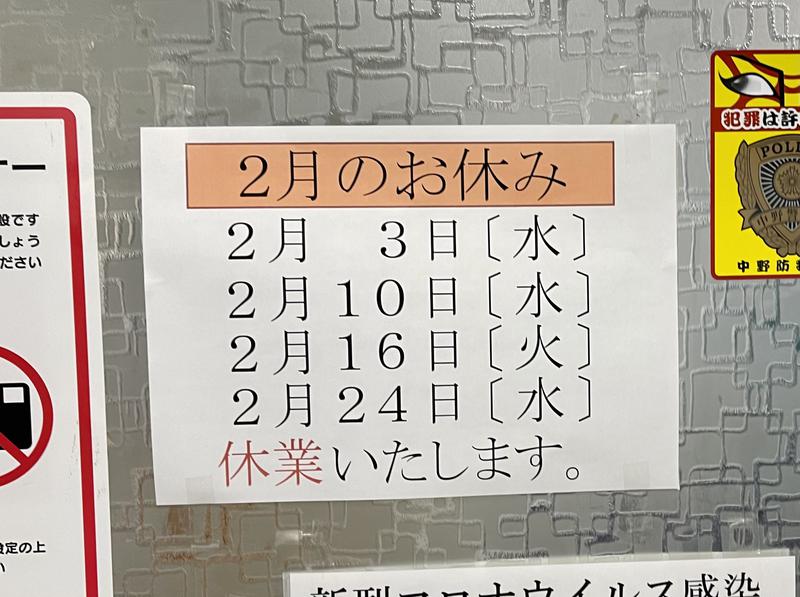 2月のお休み
2月　3日〔水〕
2月10日〔水〕
2月16日〔火〕
2月24日〔水〕
休業いたします。
設です
しょう
ださい
定の上
い
犯罪は許
POLI
中野
中野防
新型コロナウイルス感染